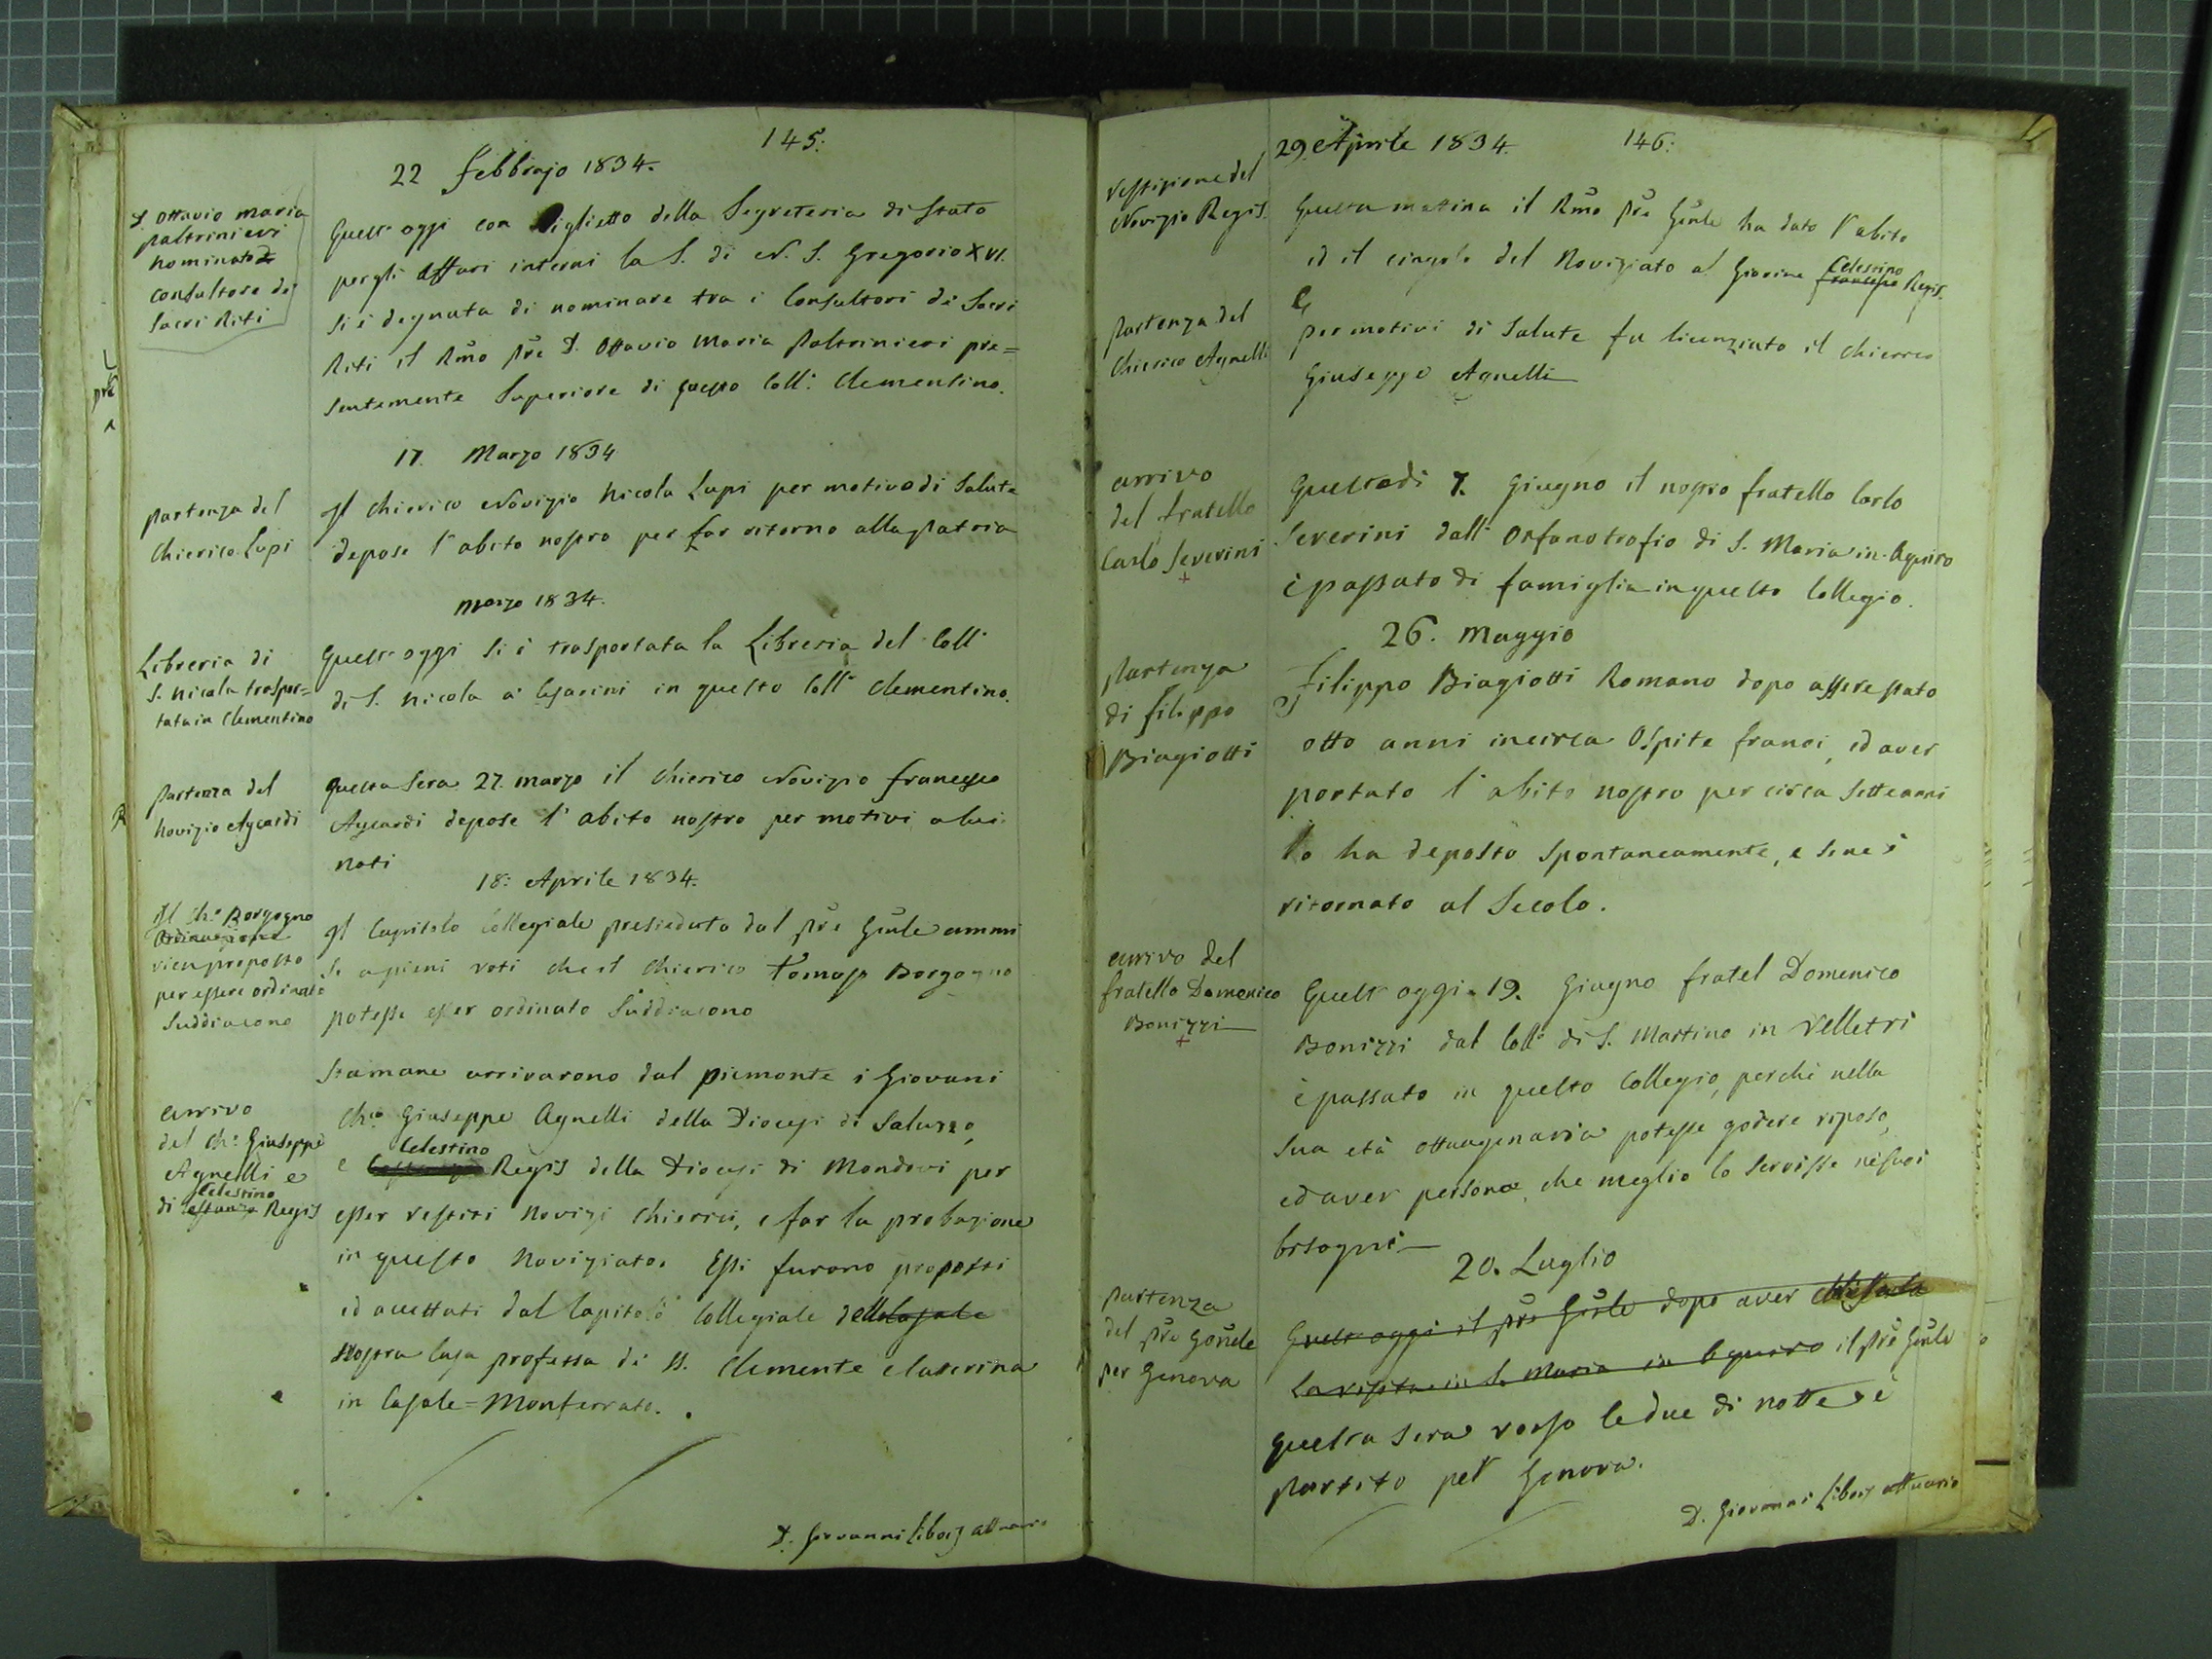 145.
22 Febbrajo 1834.
D. Ottavio Maria
Paltrinieri
nominato
Consultore dei
Sacri Riti
Quest'oggi con Biglietto della Segreteria di Stato
per gli Affari interni la S. di N. S. Gregorio XVI.
si è degnata di nominare tra i Consultori de' Sacri
Riti il Rmo Pre D. Ottavio Maria Paltrinieri pre=
sentemente Superiore di questo Coll.° Clementino.
17. Marzo 1834
Partenza del
Chierico Lupi
Il Chierico Novizio Nicola Lupi per motivo di Salute
depose l'abito nostro per far ritorno alla Patria
Marzo 1834.
Libreria di
S. Nicola traspor=
tata in Clementino
Quest'oggi si è trasportata la Libreria del Coll.°
di S. Nicola a' Cesarini in questo Coll.° Clementino.
Partenza del
Novizio Aycardi
Questa sera 27. Marzo il Chierico Novizio Francesco
Aycardi depose l'abito nostro per motivi a lui
noti
18: Aprile 1834.
Il Ch.° Borgogno
Ordinazione
vien proposto
per essere ordinato
Suddiacono
Il Capitolo Collegiale presieduto dal Pre Gnle ammi
se a pieni voti che il Chierico Tomaso Borgogno
potesse esser ordinato Suddiacono
arrivo
del Ch.° Giuseppe
Agnelli e
Celestino
di Costanzo Regis
Stamane arrivarono dal Piemonte i Giovani
Ch.° Giuseppe Agnelli della Diocesi di Saluzzo,
Celestino
e Regis della Diocesi di Mondovì per
esser vestiti Novizi Chierici, e far la probazione
in questo Noviziato. Essi furono proposti
ed accettati dal Capitolo Collegiale della Casale
Nostra Casa professa di SS. Clemente e Catterina
in Casale=Monferrato.
D. Giovanni Libois attuario
29. Aprile 1834.
146.
Vestizione del
Novizio Regis.
Questa mattina il Rmo Pre Gnle ha dato l'abito
Celestino
ed il cingolo del Noviziato al Giovine Francesco Regis.
Partenza del
Chierico Agnelli
Per motivi di Salute fu licenziato il Chierico
Giuseppe Agnelli
arrivo
del fratello
Carlo Severini
Questo dì 7. Giugno il nostro fratello Carlo
Severini dall'Orfanotrofio di S. Maria in Aquiro
è passato di famiglia in questo Collegio.
26. Maggio
Partenza
di Filippo
Biagiotti
Filippo Biagiotti Romano dopo essere stato
otto anni incirca Ospite fra noi, ed aver
portato l'abito nostro per circa sette anni
lo ha deposto spontaneamente, e se ne è
ritornato al Secolo.
arrivo del
fratello Domenico
Bonizzi
Quest'oggi 19. Giugno fratel Domenico
Bonizzi dal Coll.° di S. Martino in Velletri
è passato in questo Collegio, perchè nella
sua età ottuagenaria potesse godere riposo,
ed aver persona, che meglio lo servisse ne' suoi
bisogni
20. Luglio
Partenza
del Pre Gnle
per Genova
Quest'oggi il Pre Gnle dopo aver
la visita in S. Maria in Aquiro il Pre Gnle
questa sera verso le due di notte è
partito per Genova.
D. Giovanni Libois attuario